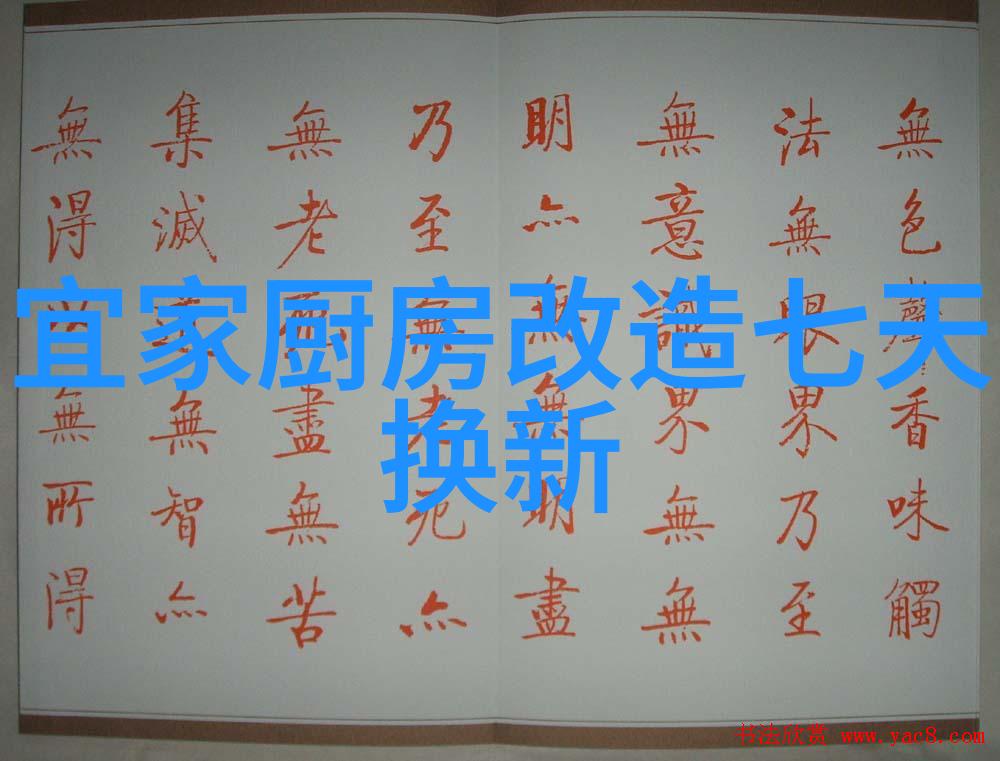 宜家厨房改造七天
换新
無色聲香味觸
法無眼界乃至
無意識界無無
明亦無無明盡
乃至無老死亦
無老死盡無苦
集滅無智亦
無得無所得
书法欣赏 www.yac8.com